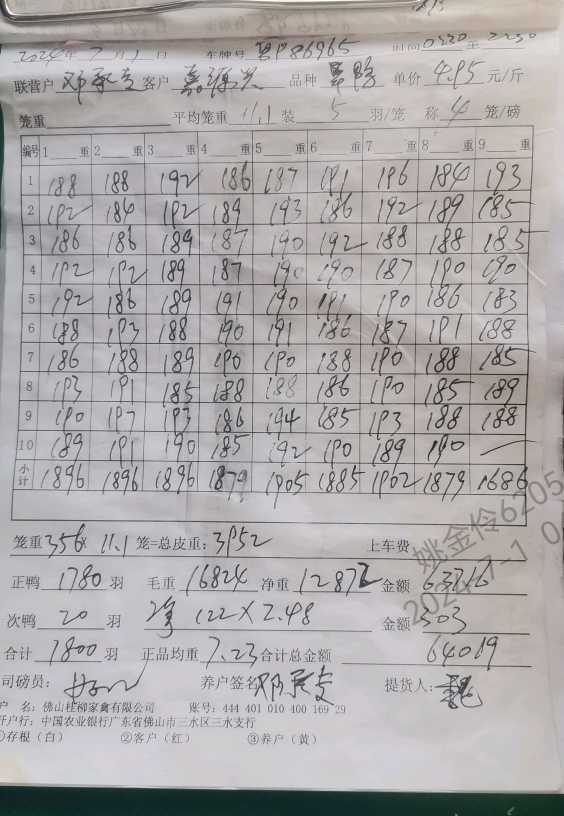 2024年7月1日 车牌号 86965 时间0230至2230
联营户 邓 客户 嘉源兴 品种 单价 4.95 元/斤
笼重 平均笼重 11.1 装 5 羽/笼 称 4 笼/磅
编号 1 重 2 重 3 重 4 重 5 重 6 重 7 重 8 重 9 重
1 188 188 192 186 187 191 196 184 193
2 192 184 192 189 193 186 192 189 185
3 186 186 189 187 190 192 188 188 185
4 192 192 189 187 190 190 187 190 190
5 192 186 189 191 190 191 190 186 183
6 188 193 188 190 191 186 187 191 188
7 186 188 189 190 190 188 190 188 185
8 193 191 185 188 188 186 190 185 189
9 190 197 193 186 194 185 193 188 188
10 189 191 190 185 192 190 189 190 —
小计 1896 1896 1896 1879 1905 1885 1902 1879 1686
笼重 356× 11.1 笼=总皮重: 3952 上车费
正鸭 1780 羽 毛重 16824 净重 12872 金额
次鸭 20 羽 净 122×2.48 金额 303
合计 1800 羽 正品均重 7.23 合计总金额 64019
司磅员: 养户签名 邓 提货人: 魏
户 名: 佛山桂柳家禽有限公司 账号: 444 401 010 400 169 29
开户行: 中国农业银行广东省佛山市三水区三水支行
①存根(白) ②客户(红) ③养户(黄)
姚金伶6205
2024-7-1 0